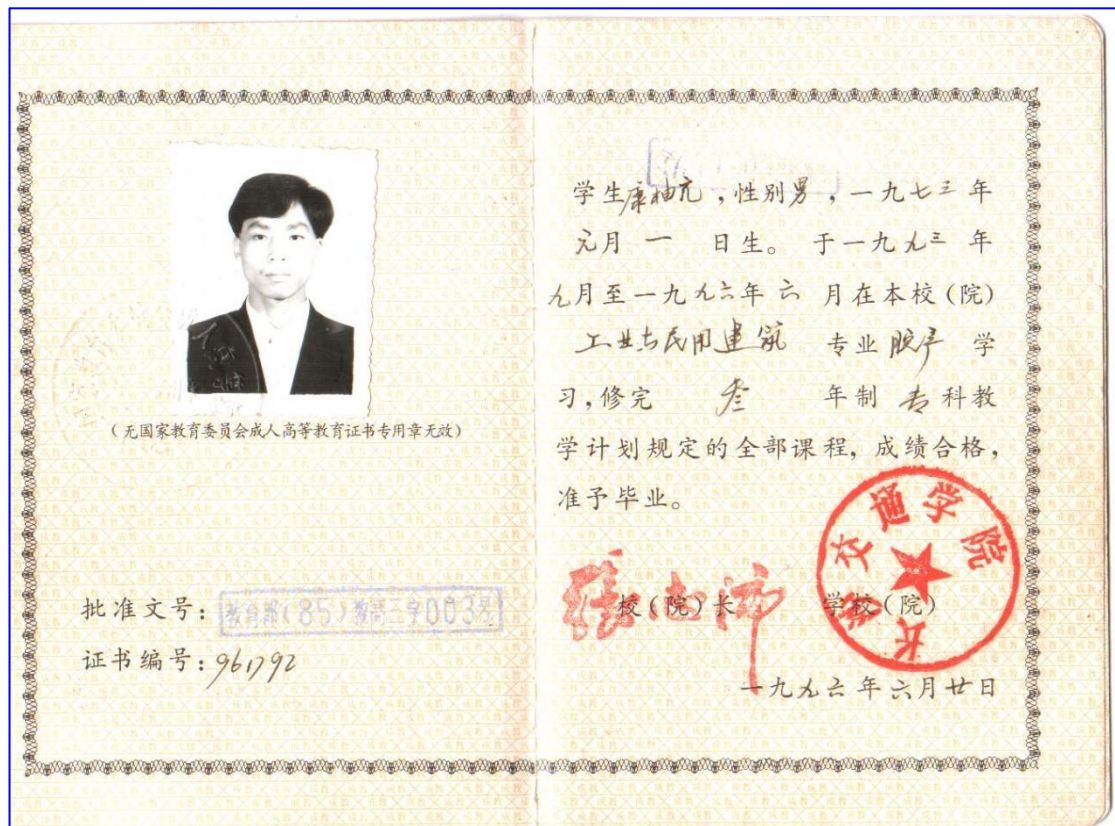 (无国家教育委员会成人高等教育证书专用章无效)
批准文号：教育部(85)教高二字003号
证书编号：961792
学生康柚亢，性别男，一九七三年
元月 一 日生。于一九九三 年
九月至一九九六年 六 月在本校(院)
工业与民用建筑 专业 脱产 学
习，修完 叁 年制 专科教
学计划规定的全部课程，成绩合格，
准予毕业。
校(院)长 学校(院)
长沙交通学院
一九九六年六月廿日